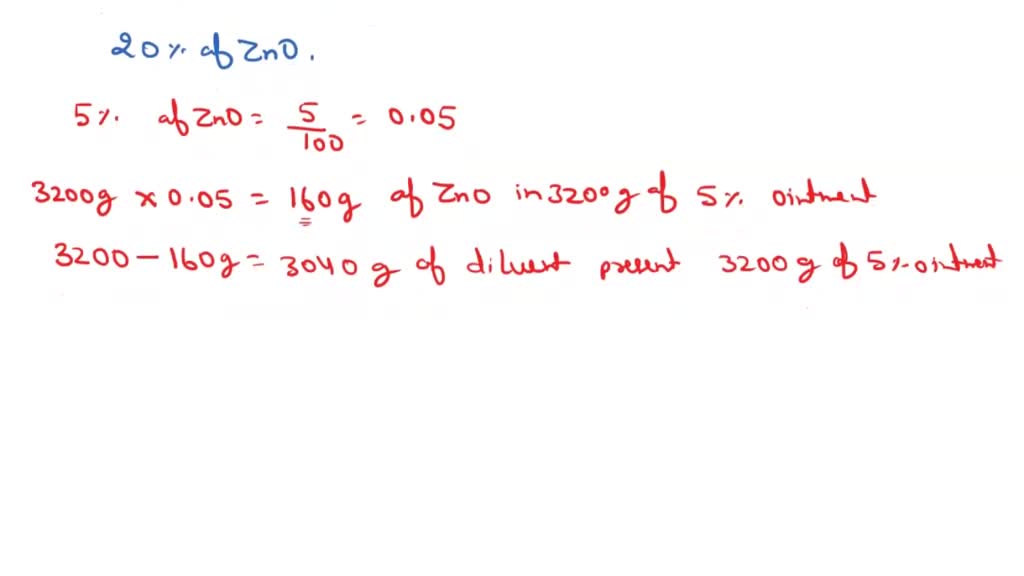 20% of ZnO.
5% of ZnO = 5/100 = 0.05
3200g x 0.05 = 160g of ZnO in 3200g of 5% ointment
3200 - 160g = 3040 g of diluent present 3200 g of 5% ointment